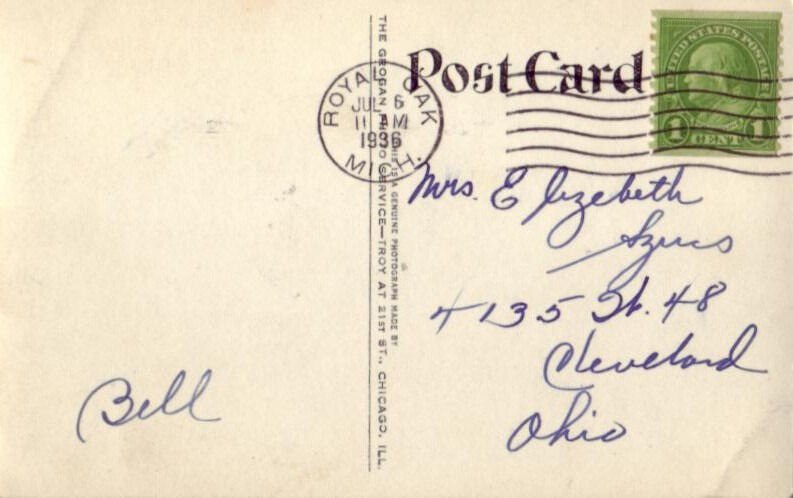 Post Card
UNITED STATES POSTAGE
1 CENT 1
ROYAL OAK
JUL 6
11 AM
1936
MICH.
THE GROGAN PHOTO SERVICE—TROY AT 21ST ST., CHICAGO, ILL.
THIS IS A GENUINE PHOTOGRAPH MADE BY
Mrs. Elizebeth
Szucs
4135 St. 48
Cleveland
Ohio
Bell